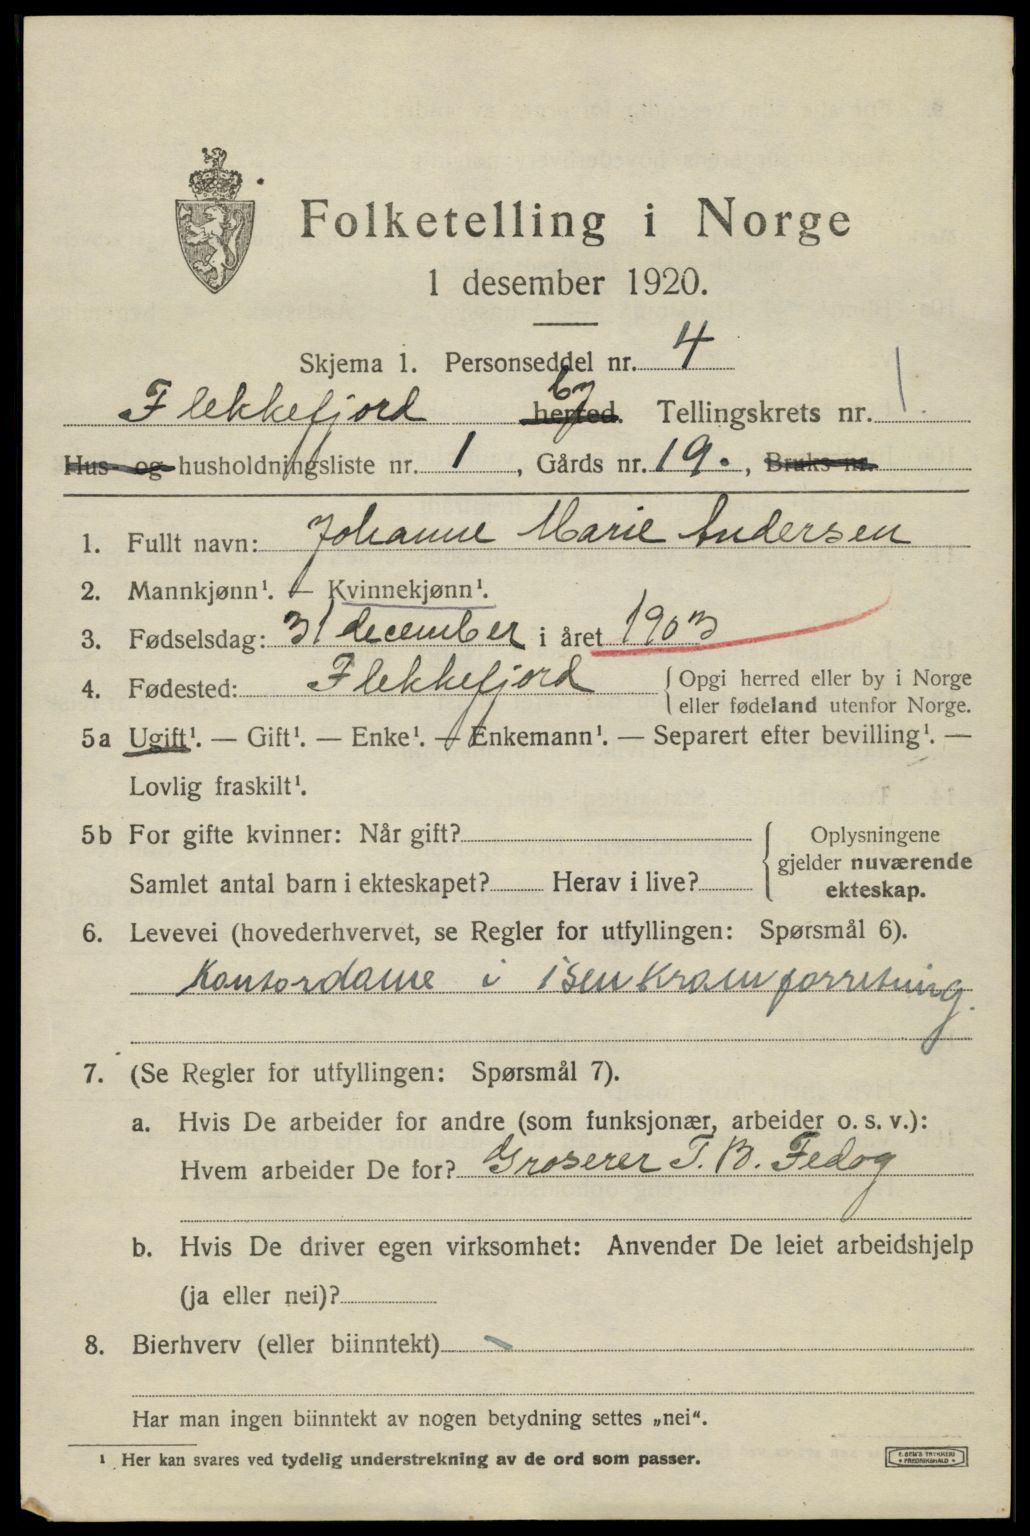 Folketelling i Norge
1 desember 1920.
Skjema 1. Personseddel nr. 4
Flekkefjord herred. by Tellingskrets nr. 1.
Hus- og husholdningsliste nr. 1, Gårds nr. 19., Bruks-nr.
1. Fullt navn: Johanne Marie Andersen
2. Mannkjønn¹. — Kvinnekjønn¹.
3. Fødselsdag: 31 december i året 1903
4. Fødested: Flekkefjord { Opgi herred eller by i Norge
eller fødeland utenfor Norge.
5a Ugift¹. — Gift¹. — Enke¹. — Enkemann¹. — Separert efter bevilling¹. —
Lovlig fraskilt¹.
5b For gifte kvinner: Når gift?
Samlet antal barn i ekteskapet? Herav i live?
{ Oplysningene
gjelder nuværende
ekteskap.
6. Levevei (hovederhvervet, se Regler for utfyllingen: Spørsmål 6).
Kontordame i isenkramforretning.
7. (Se Regler for utfyllingen: Spørsmål 7).
a. Hvis De arbeider for andre (som funksjonær, arbeider o. s. v.):
Hvem arbeider De for? Groserer T. B. Fedog
b. Hvis De driver egen virksomhet: Anvender De leiet arbeidshjelp
(ja eller nei)?
8. Bierhverv (eller biinntekt)
Har man ingen biinntekt av nogen betydning settes „nei“.
¹ Her kan svares ved tydelig understrekning av de ord som passer.